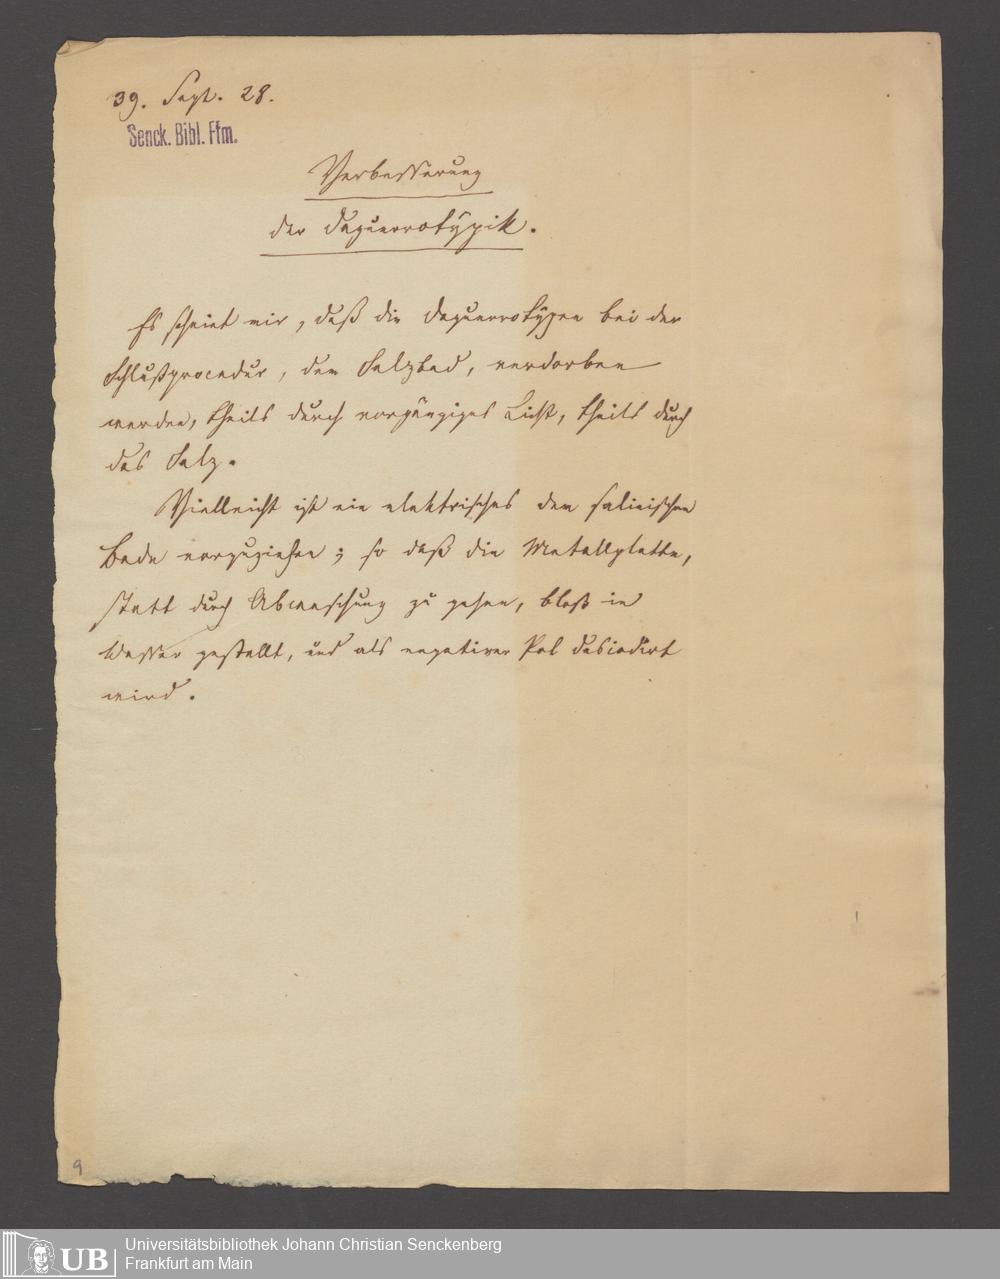 39. Sept. 28.
Senck. Bibl. Ffm.
Verbesserung
der Daguerrotypik.
Es scheint mir, daß die Daguerrotypen bei der
Schlußprocedur, dem Salzbad, verdorben
werden, theils durch vorgängiges Licht, theils durch
das Salz.
Vielleicht ist ein elektrisches dem salinischen
Bade vorzuziehen; so daß die Metallplatte,
statt durch Abwaschung zu gehen, bloß in
Wasser gestellt, und als negativer Pol desiodirt
wird.
9
UB
Universitätsbibliothek Johann Christian Senckenberg
Frankfurt am Main